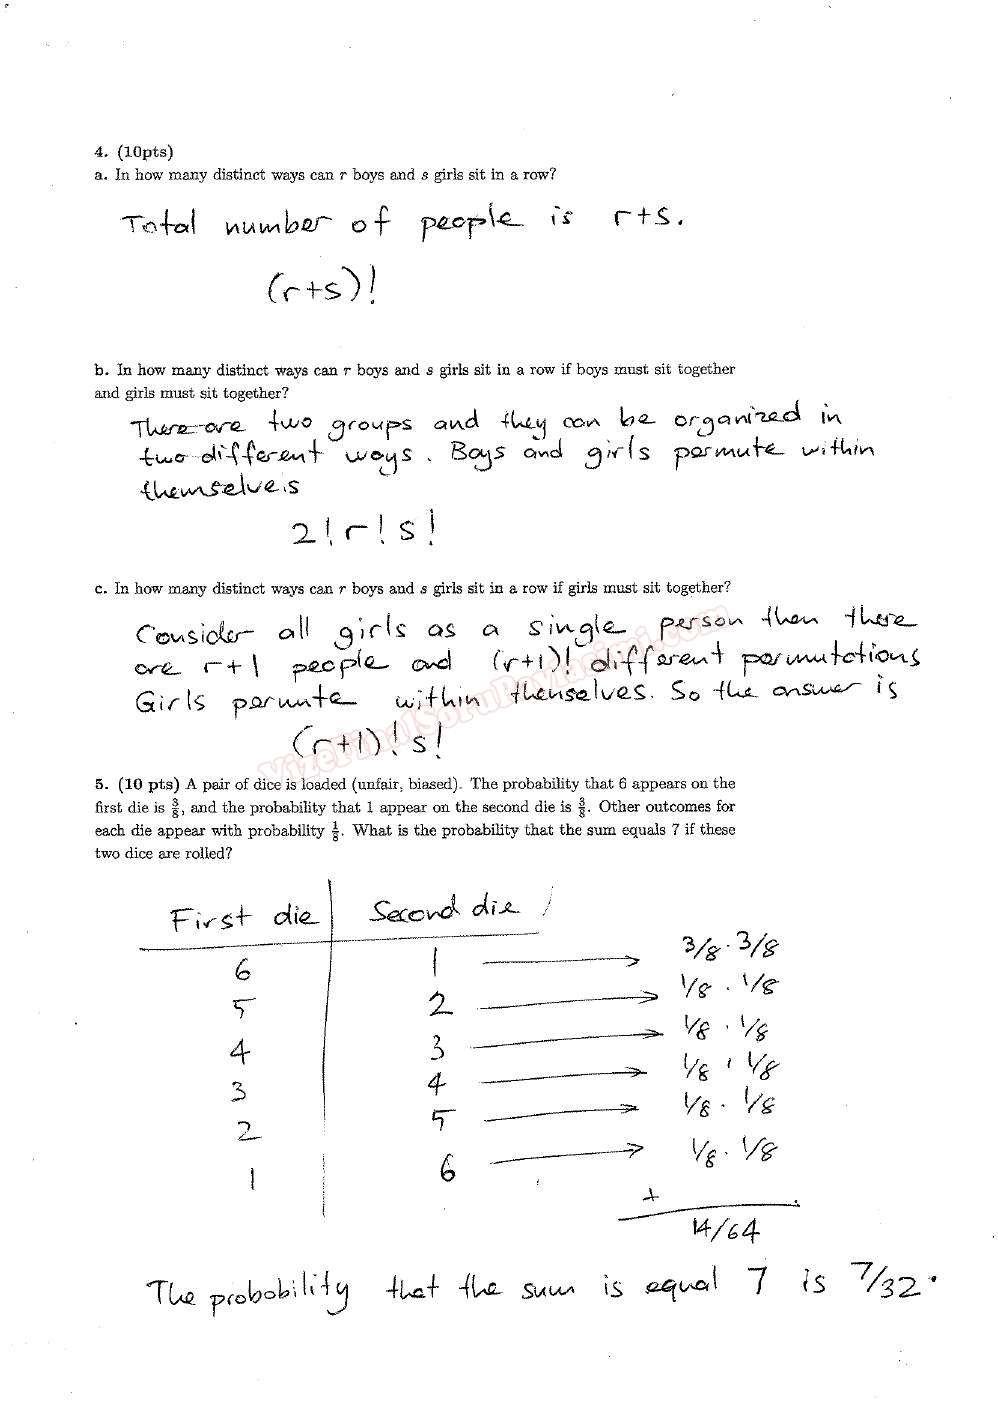 4. (10pts)
a. In how many distinct ways can r boys and s girls sit in a row?
Total number of people is r+s.
(r+s)!
b. In how many distinct ways can r boys and s girls sit in a row if boys must sit together
and girls must sit together?
There are two groups and they can be organized in
two different ways. Boys and girls permute within
themselves
2! r! s!
c. In how many distinct ways can r boys and s girls sit in a row if girls must sit together?
Consider all girls as a single person then there
are r+1 people and (r+1)! different permutations
Girls permute within themselves. So the answer is
(r+1)! s!
VizeFinalSoruPaylasimi.com
5. (10 pts) A pair of dice is loaded (unfair, biased). The probability that 6 appears on the
first die is 3/8, and the probability that 1 appear on the second die is 3/8. Other outcomes for
each die appear with probability 1/8. What is the probability that the sum equals 7 if these
two dice are rolled?
First die Second die
6 1 3/8 · 3/8
5 2 1/8 · 1/8
4 3 1/8 · 1/8
3 4 1/8 · 1/8
2 5 1/8 · 1/8
1 6 1/8 · 1/8
+
14/64
The probobility that the sum is equal 7 is 7/32.